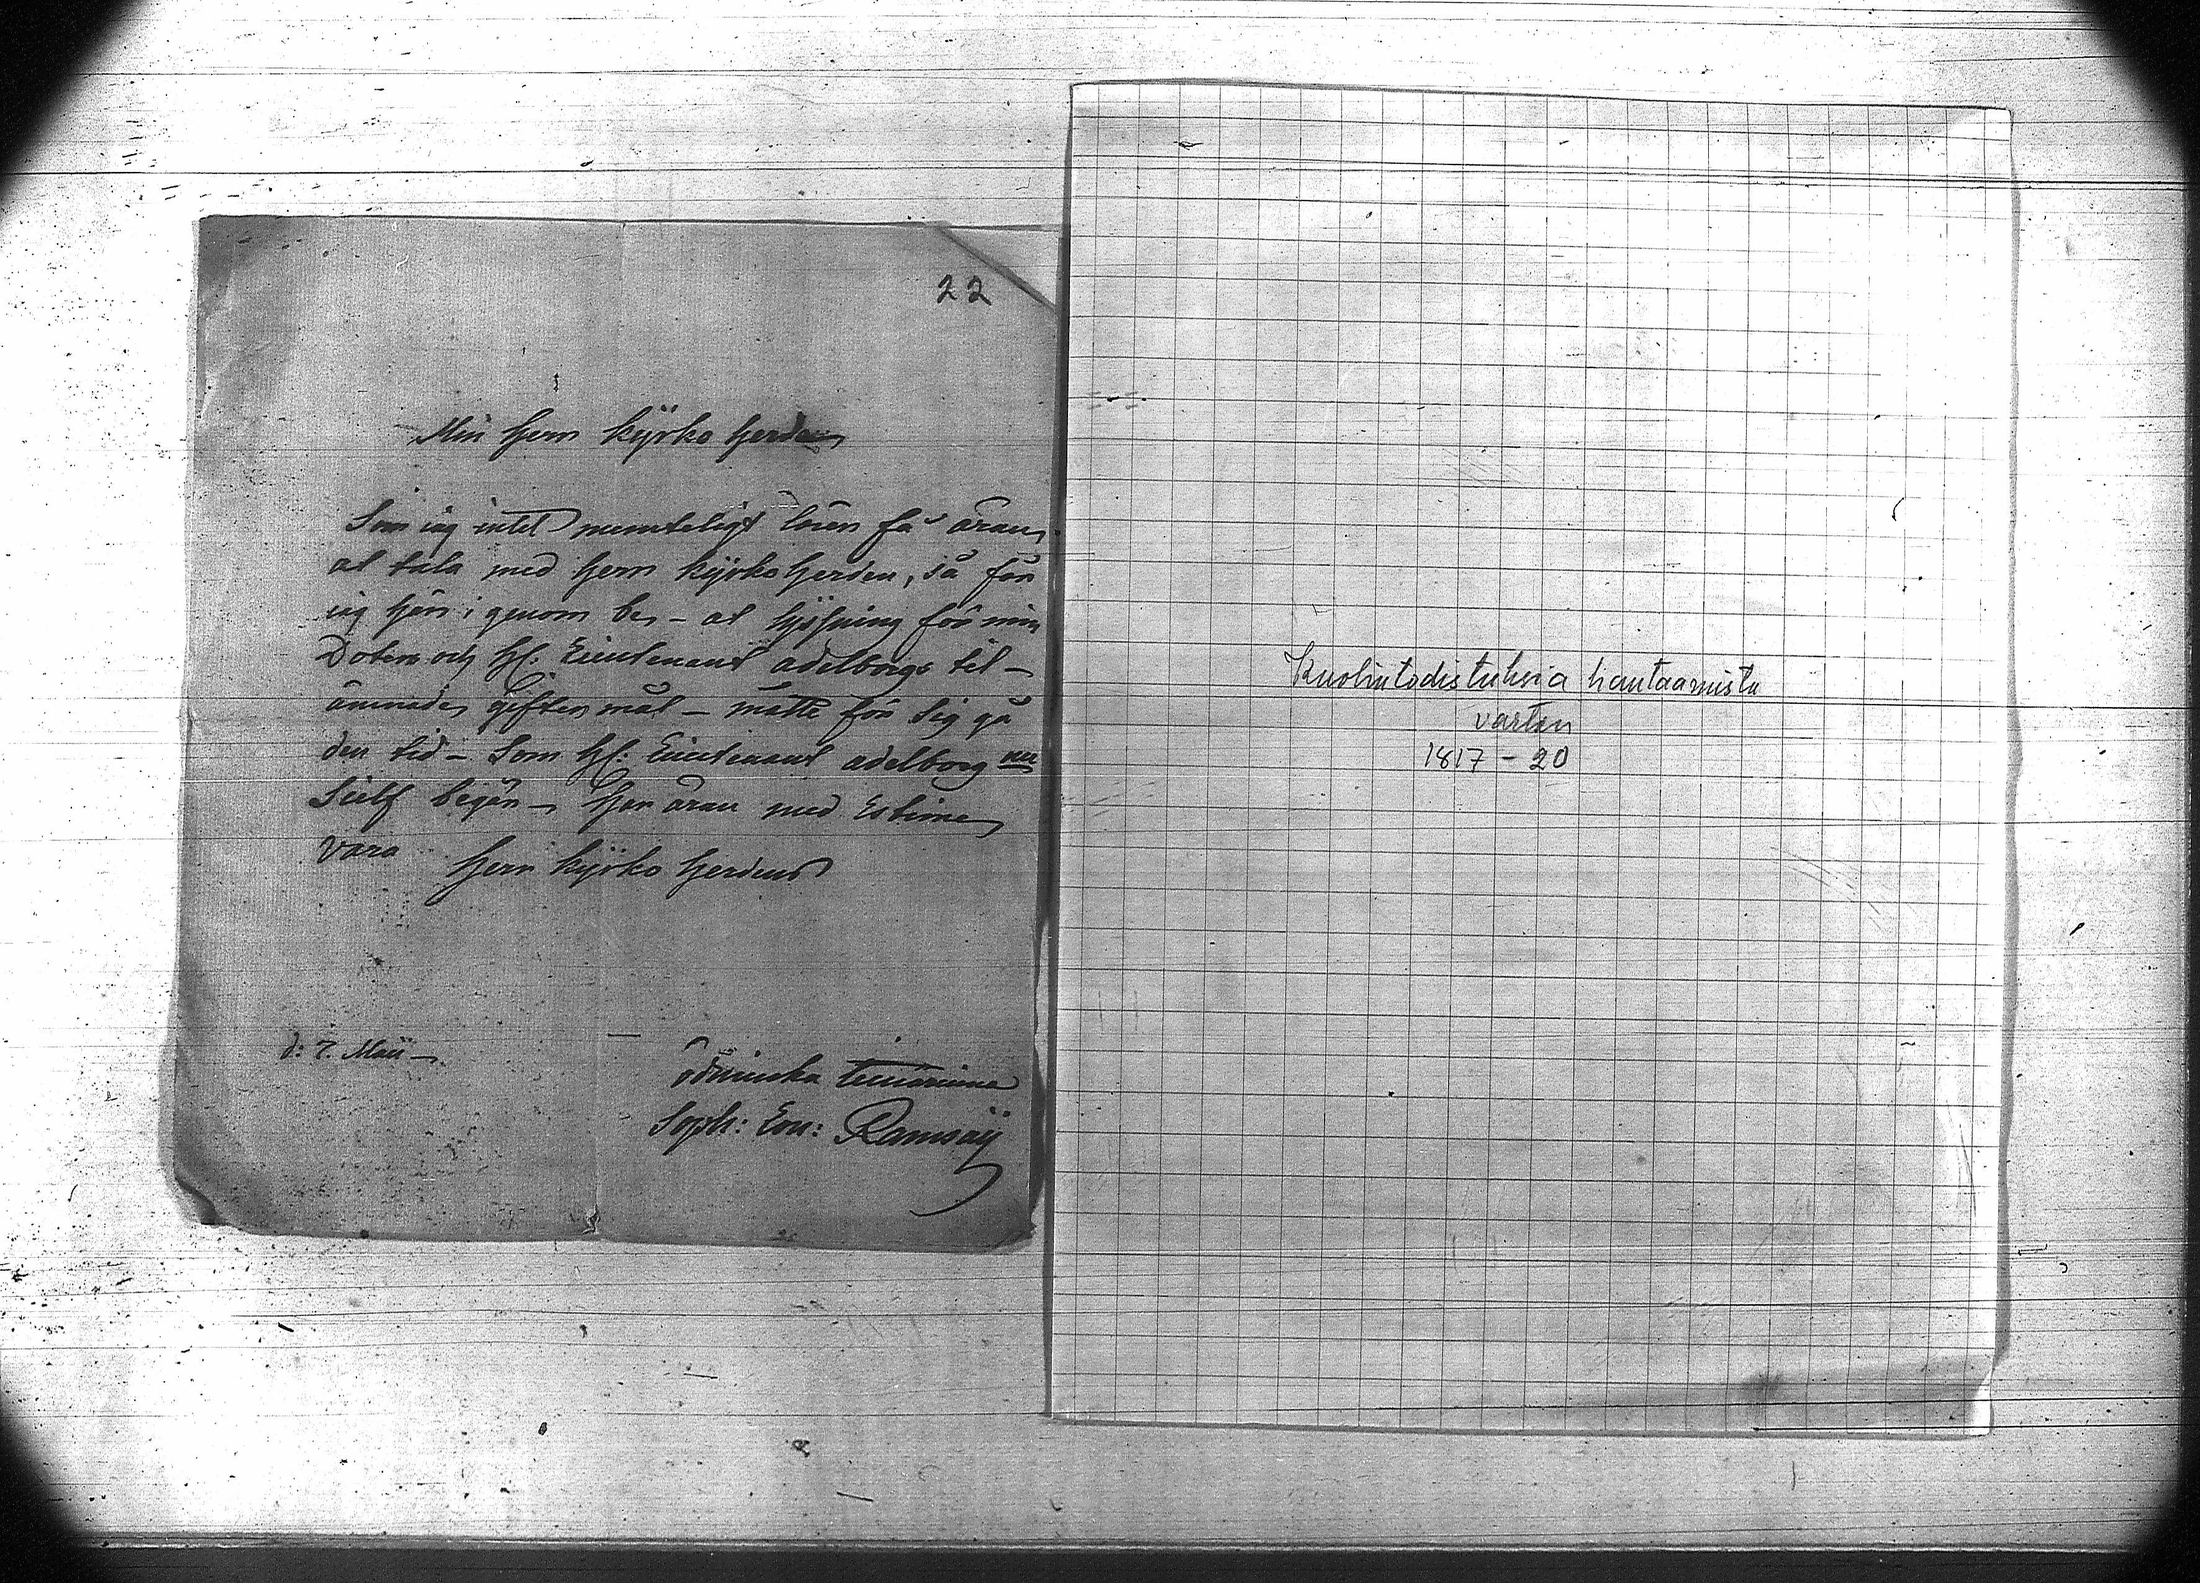 22
Min herr kyrko herde
Som iag intet munteligt lärer få äran
at tala med herr kyrko herden, så får
iag här i genom be - at lysning för min
Doter och H: Leiutenant adelborgs til-
ämnade giftermål - måtte för sig gå
den tid - Som H: Leiutenant adelborg nu
Sielf begär - har äran med Estime
vara
herr kyrko herdens
d: 7. Maii
ödmiuka tienarinna
Soph: Eon: Ramsaÿ
Kuolintodistuksia hautaamista
varten
1817 - 20